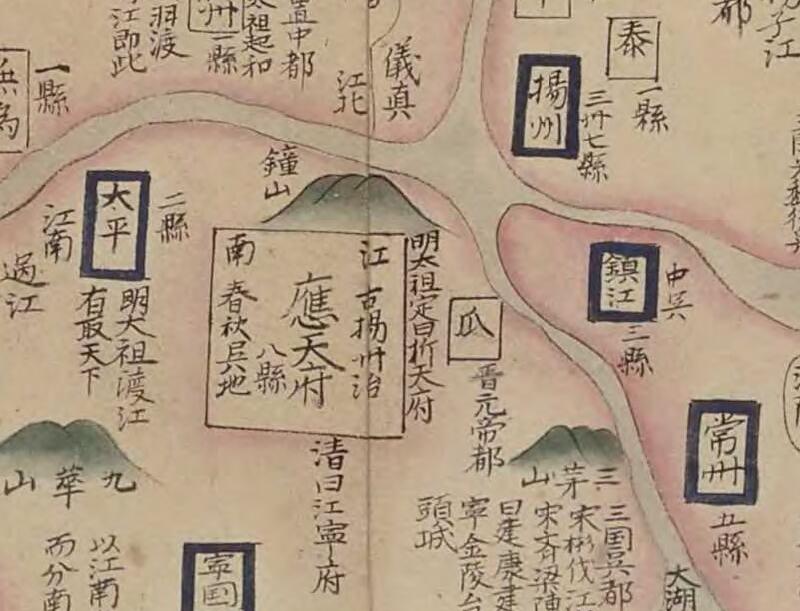 揚子江
都
泰
一縣
揚州
三卅七縣
儀眞
江北
置中都
太祖起和
州
一縣
羽渡
江即此
一縣
鐘山
二縣
太平
江南
過江
明太祖渡江
有取天下
江南
應天府
八縣
古揚州治
春秋吳地
明太祖定曰折天府
清曰江寧府
瓜
晋元帝都
鎮江
三縣
中吳
常州
五縣
三茅山
三国吳都
宋彬伐江
宋斉梁陳
曰建康建
寧金陵台
頭城
大湖
九華山
以江南
而分南
寧国